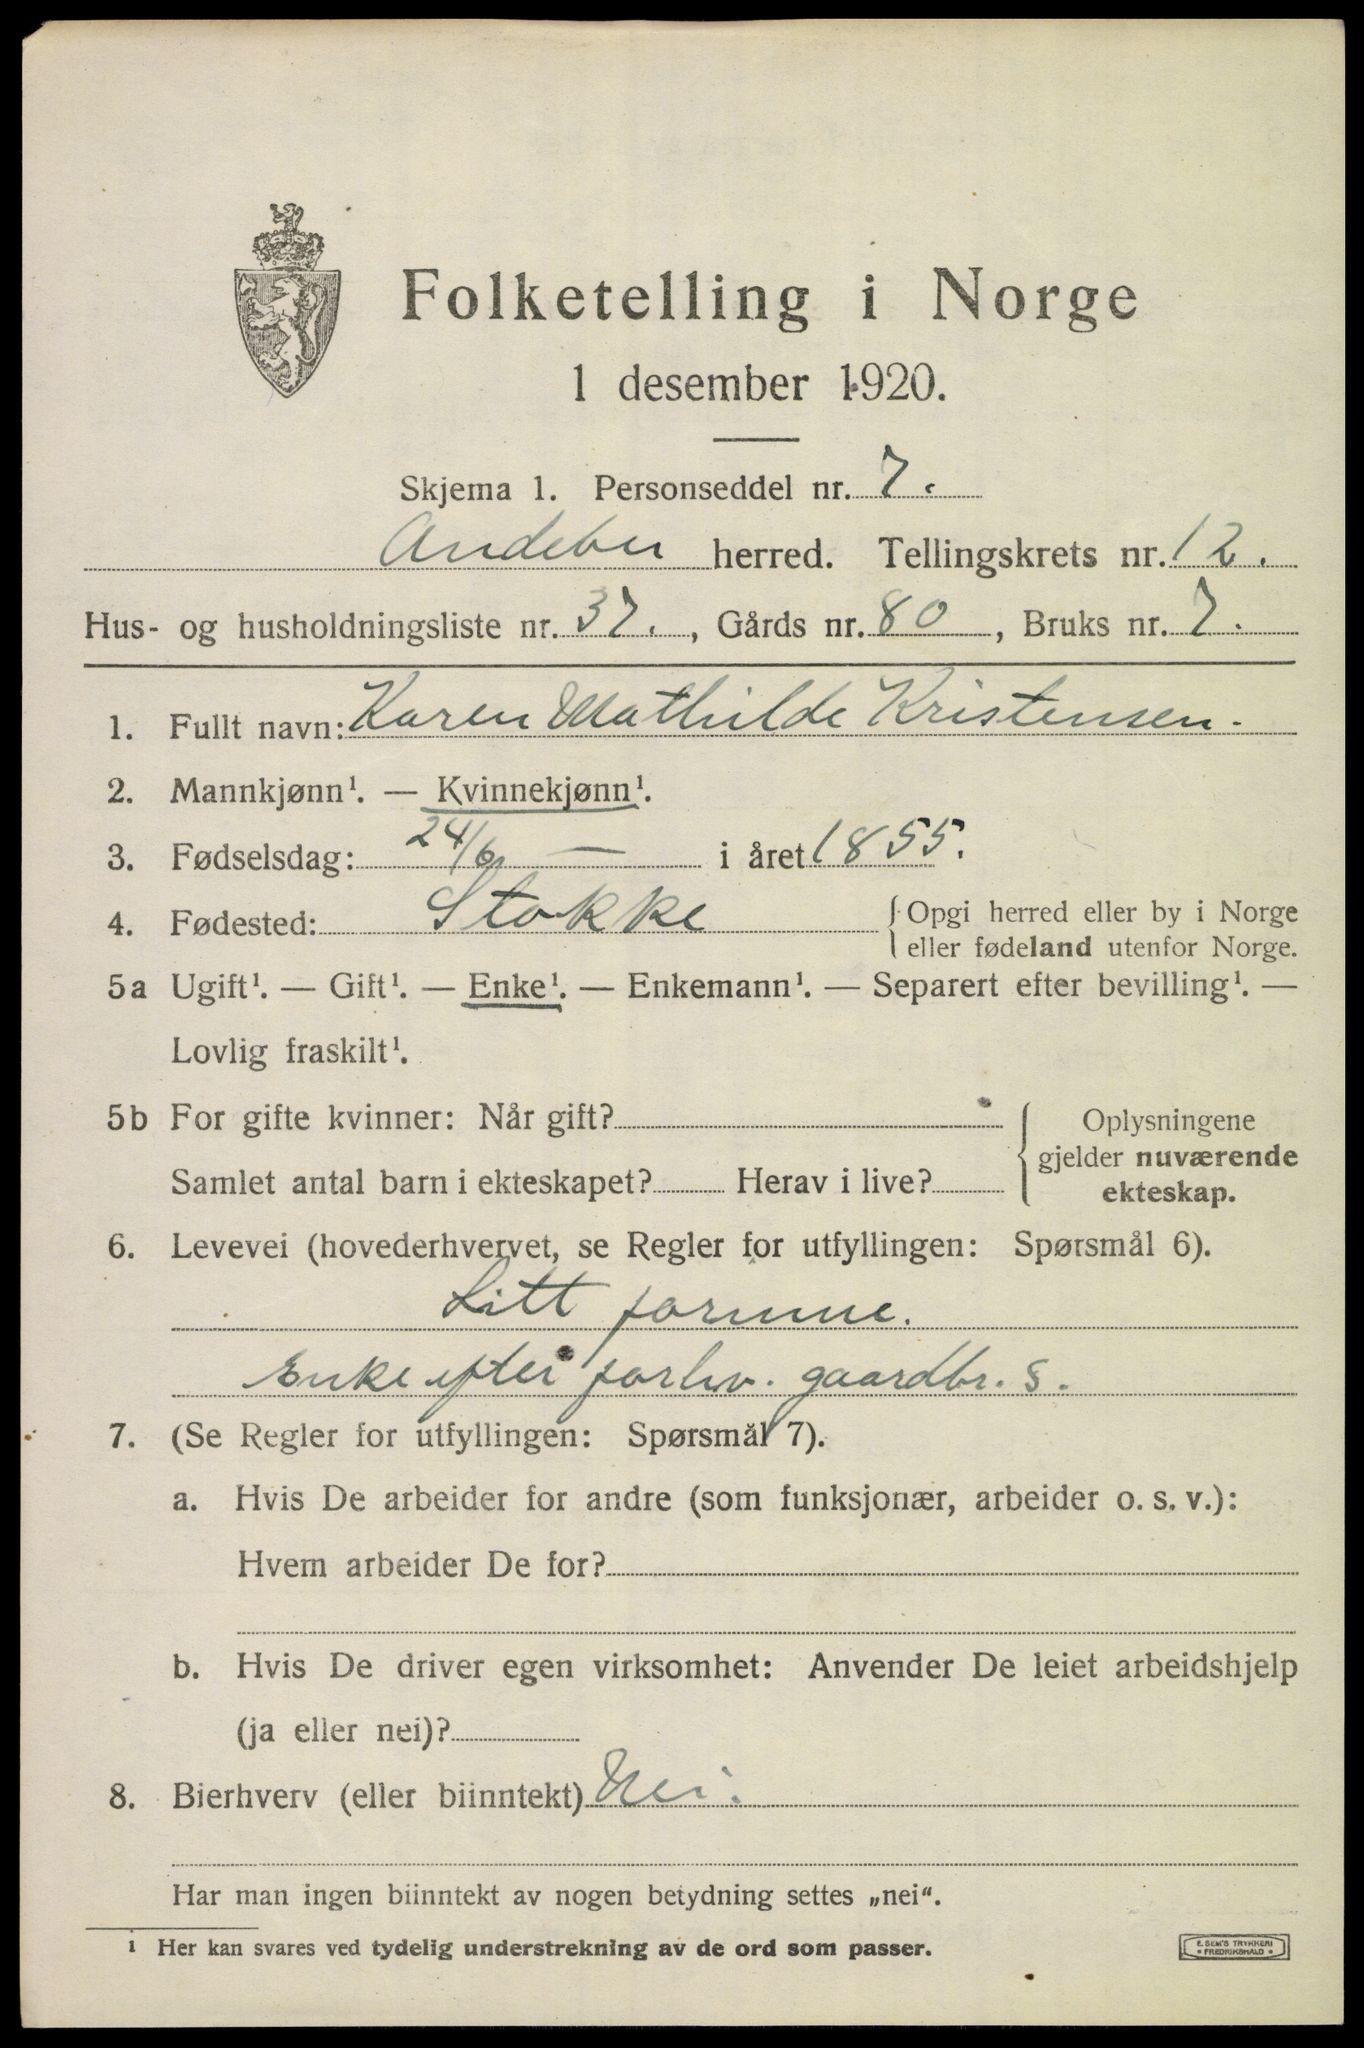 Folketelling i Norge
1 desember 1920.
Skjema 1. Personseddel nr. 7.
Andebu herred. Tellingskrets nr. 12.
Hus- og husholdningsliste nr. 37., Gårds nr. 80, Bruks nr. 7.
1. Fullt navn: Karen Mathilde Kristensen.
2. Mannkjønn¹. — Kvinnekjønn¹.
3. Fødselsdag: 24/6 — i året 1855.
4. Fødested: Stokke {Opgi herred eller by i Norge
eller fødeland utenfor Norge.
5a Ugift¹. — Gift¹. — Enke¹. — Enkemann¹. — Separert efter bevilling¹. —
Lovlig fraskilt¹.
5b For gifte kvinner: Når gift? Oplysningene
gjelder nuværende
Samlet antal barn i ekteskapet? Herav i live? ekteskap.
6. Levevei (hovederhvervet, se Regler for utfyllingen: Spørsmål 6).
Litt formue.
Enke efter forhv. gaardbr. s.
7. (Se Regler for utfyllingen: Spørsmål 7).
a. Hvis De arbeider for andre (som funksjonær, arbeider o. s. v.):
Hvem arbeider De for?
b. Hvis De driver egen virksomhet: Anvender De leiet arbeidshjelp
(ja eller nei)?
8. Bierhverv (eller biinntekt) Nei.
Har man ingen biinntekt av nogen betydning settes „nei“.
¹ Her kan svares ved tydelig understrekning av de ord som passer.
E. SEM'S TRYKKERI
• FREDRIKSHALD •